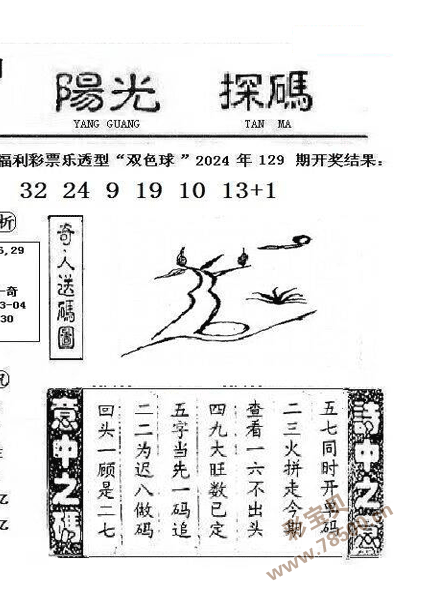 陽光 探碼
YANG GUANG TAN MA
福利彩票乐透型“双色球”2024 年 129 期开奖结果:
32 24 9 19 10 13+1
析
,29
奇人送碼圖
-奇
3-04
30
詩中之
五七同时开单码
二三火拼走今期
查看一六不出头
四九大旺数已定
五字当先一码追
二二为迟八做码
回头一顾是二七
意中之碼
亿
亿
彩宝贝
www.78500.cn